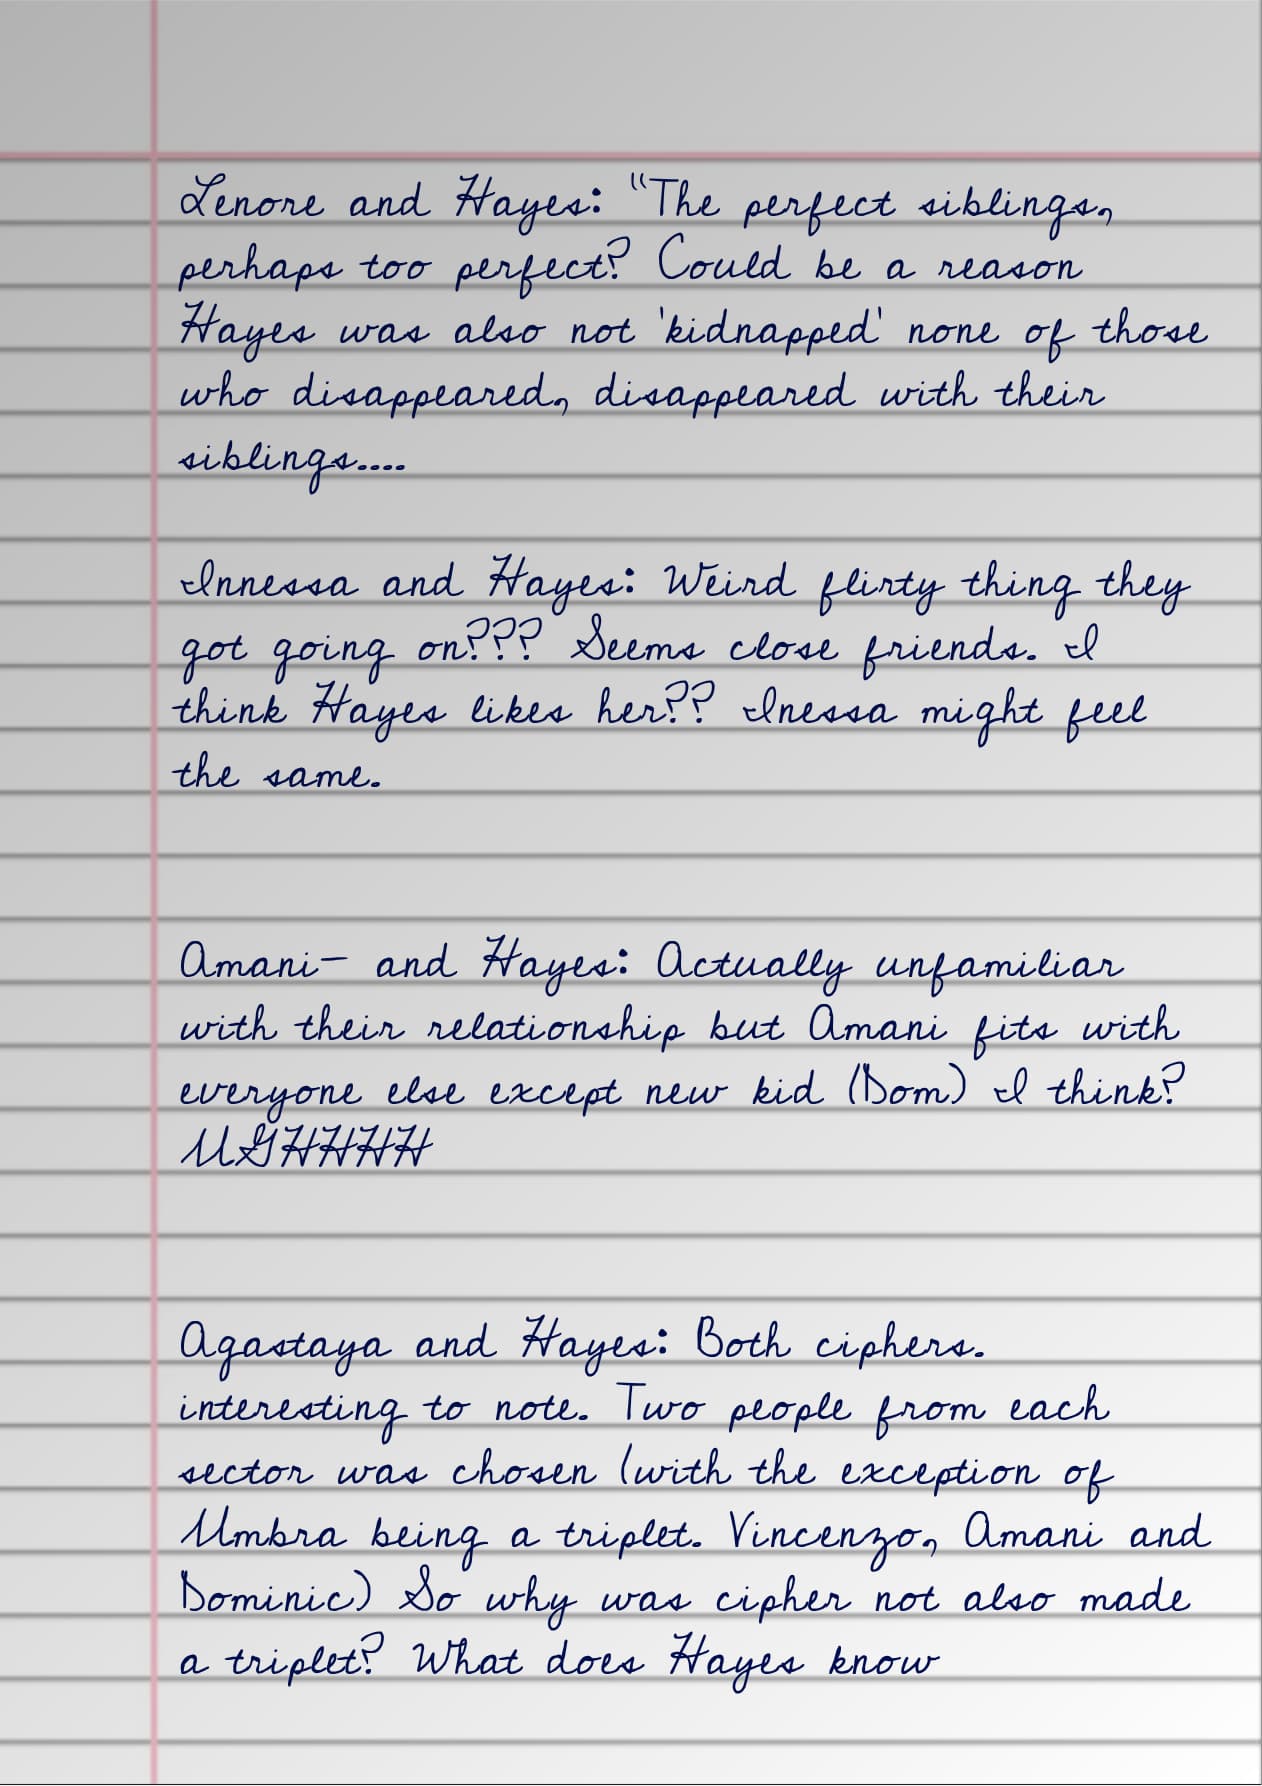 Lenore and Hayes: "The perfect siblings,
perhaps too perfect? Could be a reason
Hayes was also not 'kidnapped' none of those
who disappeared, disappeared with their
siblings....
Innessa and Hayes: Weird flirty thing they
got going on??? Seems close friends. I
think Hayes likes her?? Inessa might feel
the same.
Amani- and Hayes: Actually unfamiliar
with their relationship but Amani fits with
everyone else except new kid (Dom) I think?
UGHHHH
Agastaya and Hayes: Both ciphers.
interesting to note. Two people from each
sector was chosen (with the exception of
Umbra being a triplet. Vincenzo, Amani and
Dominic) So why was cipher not also made
a triplet? What does Hayes know